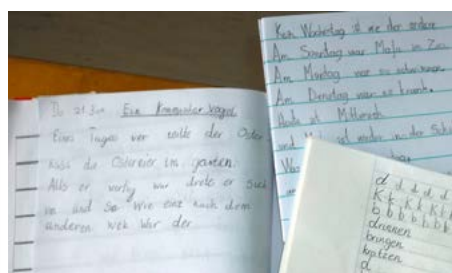 Do 21 Jan Ein Komischer Vogel
Eines Tages ver der Oster
hase die Ostereier im garten.
Als er fertig war drete er sich
um und so wie eins nach dem
anderen wek war der
Kein Wochentag ist wie der andere
Am Sonntag war Maja im Zoo.
Am Montag war sie schwimmen.
Am Dienstag war sie krank.
Heute ist Mittwoch
und ist wieder in der Schu
d d d d d
K k k k k k
b b b b b b b
drucken
bringen
d